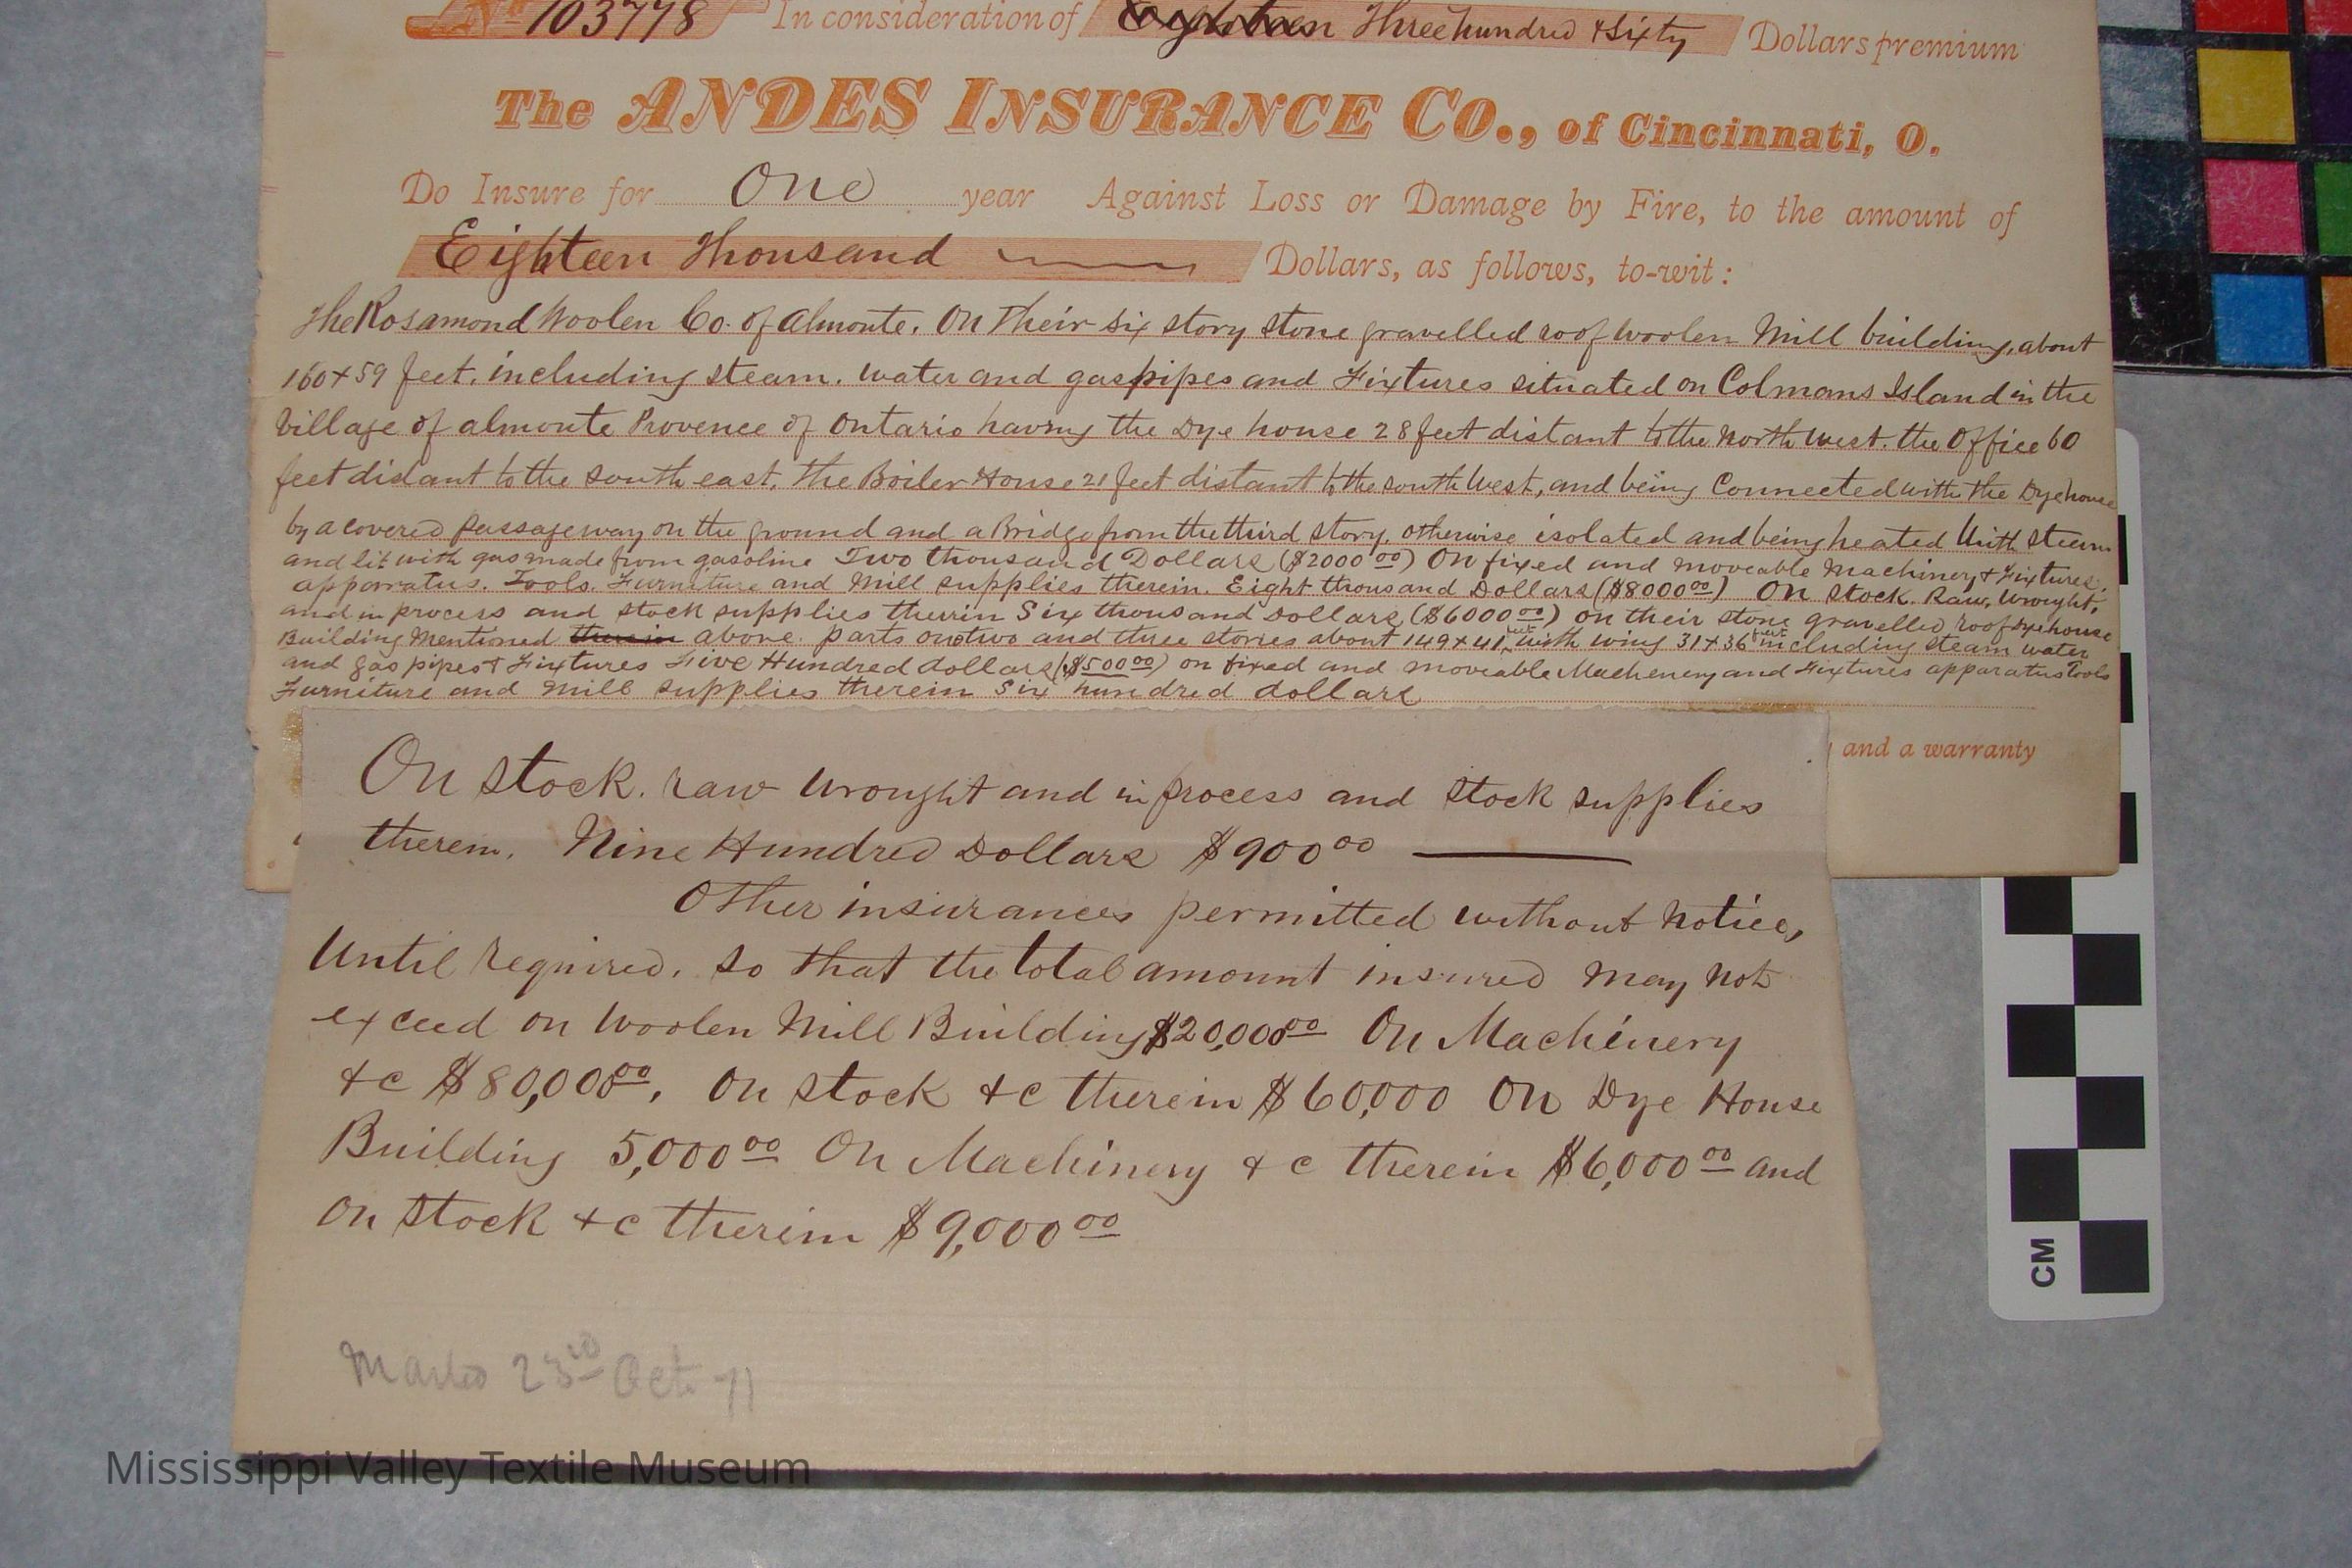 No 103778 In consideration of Eighteen Three hundred & Sixty Dollars premium
The ANDES INSURANCE CO., of Cincinnati, O.
Do Insure for One year Against Loss or Damage by Fire, to the amount of
Eighteen Thousand Dollars, as follows, to-wit:
The Rosamond Woolen Co. of Almonte. On Their six story stone gravelled roof woolen Mill building, about
160 x 59 feet. including steam. water and gas pipes and Fixtures situated on Colmans Island in the
Village of almonte Provence of Ontario having the Dye house 28 feet distant to the North West. the Office 60
feet distant to the south east. The Boiler House 21 feet distant to the south West, and being Connected with the Dye house
by a covered passageway on the ground and a Bridge from the third story. otherwise isolated and being heated With steam
and lit with gas made from gasoline Two thousand Dollars ($2000 00) On fixed and moveable Machinery & Fixtures.
apparatus. Tools. Furniture and Mill supplies therein. Eight thousand Dollars ($8000 00) On stock. Raw, Wrought,
and in process and stock supplies therin Six thousand Dollars ($6000 00) on their stone gravelled roof Dye house
Building Mentioned therein above. parts one two and three stories about 149 x 41 feet with wing 31 x 36 feet including steam water
and gas pipes & Fixtures Five Hundred dollars ($500 00) on fixed and moveable Machenery and Fixtures apparatus Tools
Furniture and Mill supplies therein Six hundred dollars
and a warranty
On stock. raw wrought and in process and stock supplies
therein. Nine Hundred Dollars $900 00
Other insurances permitted without notice,
Until required. so that the total amount insured may not
exceed on Woolen Mill Building $20,000 00 On Machinery
& c $80,000 00. On stock & c therein $60,000 On Dye House
Building 5,000 00 On Machinery & c therein $6,000 00 and
On stock & c therein $9,000 00
23rd Oct 71
CM
Mississippi Valley Textile Museum